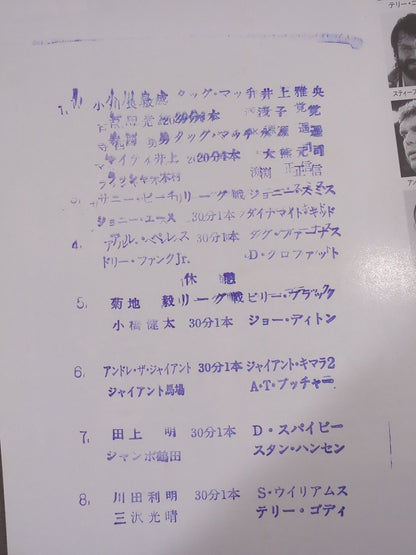 テリー・
スティーブ
1, 小川良成 タッグ・マッチ 井上雅央
20分1本 浅子 覚
タッグ・マッチ 永源 遥
マイティ井上 20分1本 大熊元司
ラッシャー木村 渕 正信
サニー・ビーチ リーグ戦 ジョニー・スミス
ジョニー・エース 30分1本 ダイナマイト・キッド
4, アル・ペレス ダグ・ファーナス
ドリー・ファンクJr. D・クロファット
休 憩
5, 菊地 毅 リーグ戦 ビリー・ブラック
小橋健太 30分1本 ジョー・ディトン
6, アンドレ・ザ・ジャイアント 30分1本 ジャイアント・キマラ2
ジャイアント馬場 A・T・ブッチャー
7, 田上 明 30分1本 D・スパイビー
ジャンボ鶴田 スタン・ハンセン
8, 川田利明 30分1本 S・ウイリアムス
三沢光晴 テリー・ゴディ